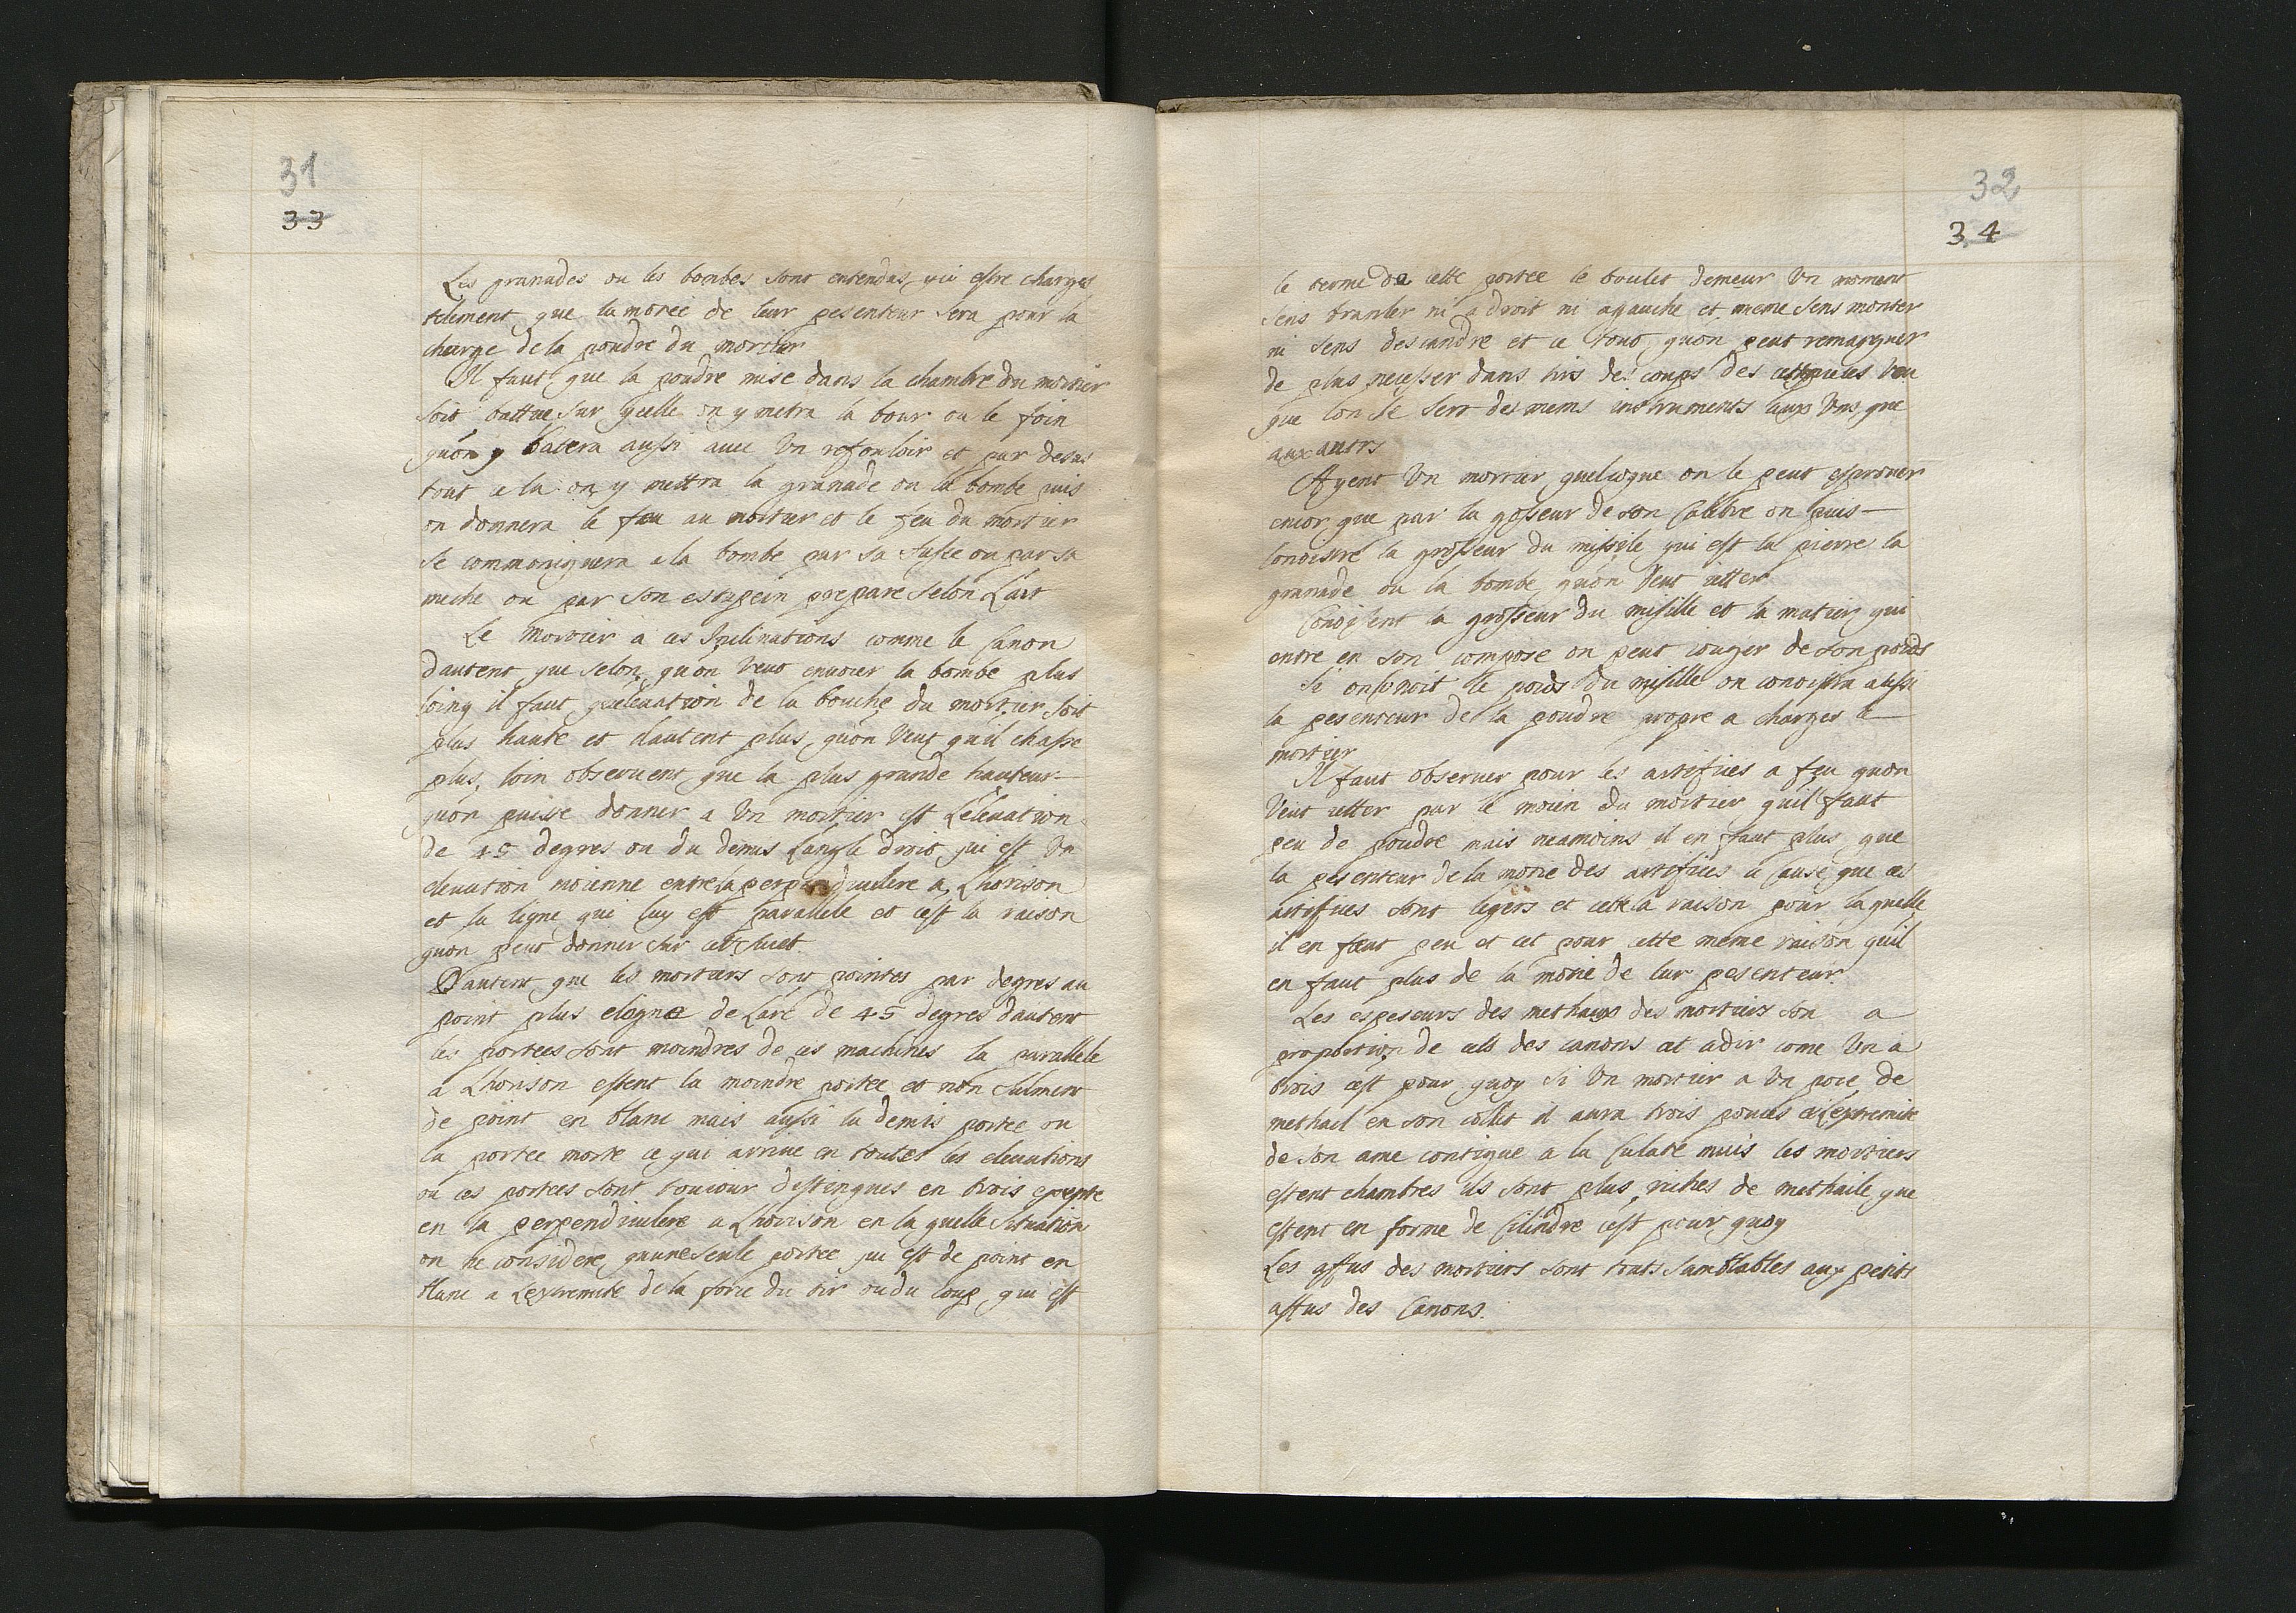 31
33
Les granades ou les bombes sont entendus, ici estre charges
telement que la moreé de leur pesenteur sera pour la
charge de la poudre du mortier
Il faut que la poudre mise dans la chambre du mortier
soit battue sur quelle on y metra la bour ou le foin
quon y batera aussi avec Un refouloir et par desus
tout cela on y mettra la granade ou la bombe puis
on donnera le feu au mortier et le feu du mortier
se commoniquera a la bombe par sa fusée ou par sa
meche ou par son estupein prepare selon Lart
Le mortier a ces Inclinations comme le Canon
dautent que selon quon Veut envoier la bombe plus
loing il faut quelevation de la bouche du mortier soit
plus haute et dautent plus quon Veut quil chasse
plus loin observent que la plus grande hauteur
quon puisse donner a Un mortier est Lelevation
de 45 degres ou du demis Langle droit qui est Un
elevation moienne entre la perpendiculere a Lhorison
et la ligne qui luy est parallele et cest la raison
quon peut donner sur ce suiet
Dautent que les mortiers sont pointes par degres au
point plus elogne de Larc de 45 degres dautent
les portees sont moindres de ces machines la parallele
a Lhorison estent la moindre portee et non sulment
de point en blanc mais aussi la demis portee ou
la portee morte ce qui arrive en toutes les elevations
ou ces portees sont toujour destingues en trois excepte
en la perpendiculere a Lhorison en la quelle situation
on ne considere quune seule portee qui est de point en
blanc a Lextremite de la force du tir ou du coup qui est
32
34
le terme de cette portee le boulet demeur Un moment
sens branler ni a droit ni agauche et meme sens monter
ni sens descandre et ce tout quon peut remarquer
de plus necesser dans tirs des coups des veu
que lon se sert des mems instruments aux Uns que
aux autrs
Ayent Un mortier quelcoque on le peut esprover
encor que par la gosseur de son Calibre on puis
Conoistre la grosseur du missile qui est la pierre la
granade ou la bombe quon Veut ietter
Conoissent la grosseur du misille et la matier qui
entre en son compose on peut iouger de son poids
Si on Conoit le poids du misille on conoistra aussi
la pesenteur de la poudre propre a charger le
mortier
Il faut observer pour les artefices a feu quon
Veut ietter par le moien du mortier quil faut
peu de poudre mais neamoins il en faut plus que
la pesenteur de la motie des artefices a cause que ces
artefices sont legers et cette la raison pour laquelle
il en faut peu et cet pour cette meme raison quil
en faut plus de la motie de lur pesenteur
Les espeseurs des methaux des mortiers son a
proportion de cells des canons cet adir come Un a
trois cest pour quoy si Un mortier a Un poce de
methail en son collet il aura trois pouces a Lextremite
de son ame contigue a la Culate mais les mortiers
estent chambres ils sont plus riches de methaile que
estent en forme de Cilindre cest pour quoy
Les affus des mortiers sont touts samblables aux petits
affus des Canons.